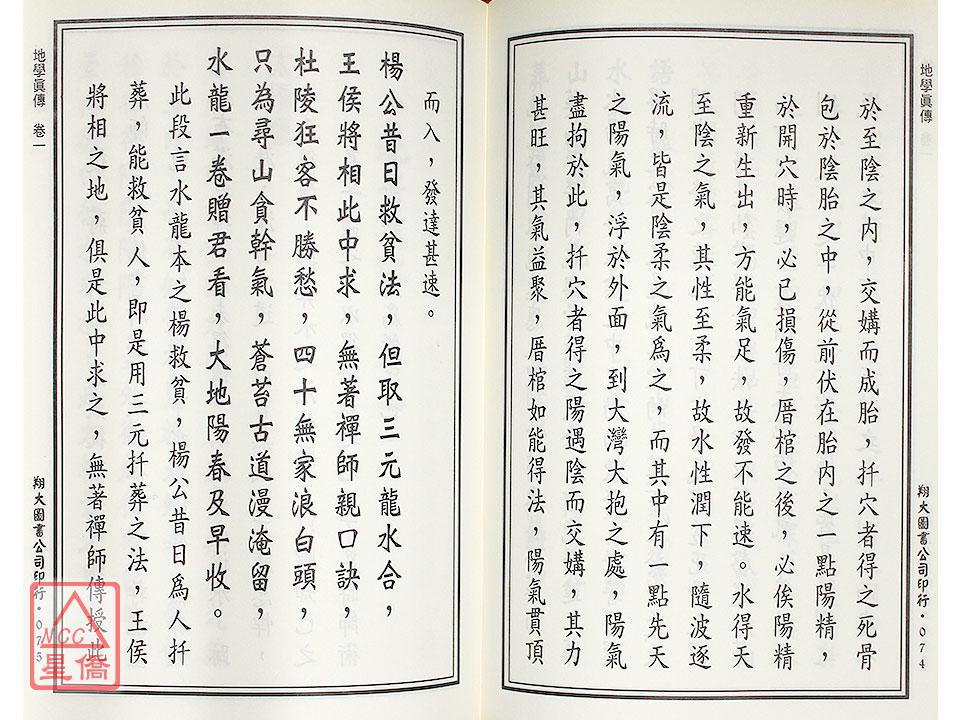 地學眞傳 卷一
於至陰之內，交媾而成胎，扦穴者得之死骨
包於陰胎之中，從前伏在胎內之一點陽精，
於開穴時，必已損傷，厝棺之後，必俟陽精
重新生出，方能氣足，故發不能速。水得天
至陰之氣，其性至柔，故水性潤下，隨波逐
流，皆是陰柔之氣爲之，而其中有一點先天
之陽氣，浮於外面，到大灣大抱之處，陽氣
盡拘於此，扦穴者得之陽遇陰而交媾，其力
甚旺，其氣益聚，厝棺如能得法，陽氣貫頂
翔大圖書公司印行・074
而入，發達甚速。
楊公昔日救貧法，但取三元龍水合，
王侯將相此中求，無著禪師親口訣，
杜陵狂客不勝愁，四十無家浪白頭，
只為尋山貪幹氣，蒼苔古道漫淹留，
水龍一卷贈君看，大地陽春及早收。
此段言水龍本之楊救貧，楊公昔日爲人扦
葬，能救貧人，即是用三元扦葬之法，王侯
將相之地，俱是此中求之，無著禪師傳授此
地學眞傳 卷一
翔大圖書公司印行・075
MCC
星僑